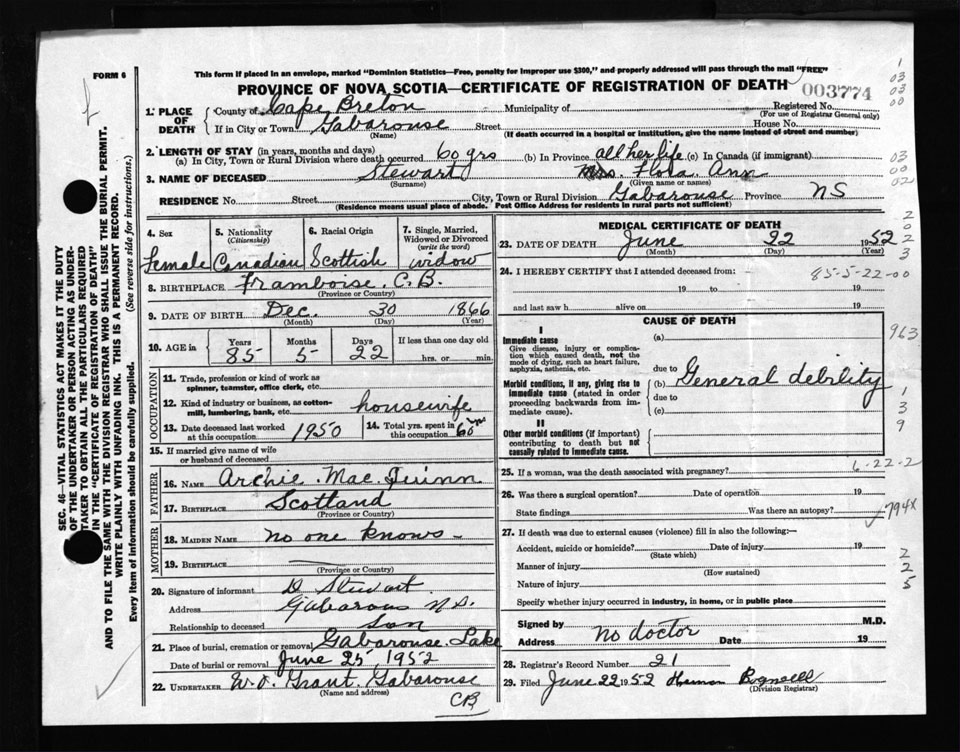 FORM 6
This form if placed in an envelope, marked "Dominion Statistics—Free, penalty for improper use $300," and properly addressed will pass through the mail "FREE"
PROVINCE OF NOVA SCOTIA—CERTIFICATE OF REGISTRATION OF DEATH
003774
1. PLACE OF DEATH County of Cape Breton Municipality of Registered No.
(For use of Registrar General only)
If in City or Town Gabarouse Street House No.
(Name) (If death occurred in a hospital or institution, give the name instead of street and number)
2. LENGTH OF STAY (in years, months and days)
(a) In City, Town or Rural Division where death occurred 60 yrs (b) In Province all her life (c) In Canada (if immigrant)
3. NAME OF DECEASED Stewart Mrs. Flora Ann
(Surname) (Given name or names)
RESIDENCE No. Street City, Town or Rural Division Gabarouse Province NS
(Residence means usual place of abode. Post Office Address for residents in rural parts not sufficient)
4. Sex 5. Nationality (Citizenship) 6. Racial Origin 7. Single, Married, Widowed or Divorced (write the word)
Female Canadian Scottish widow
8. BIRTHPLACE Framboise C.B.
(Province or Country)
9. DATE OF BIRTH Dec. 30 1866
(Month) (Day) (Year)
10. AGE in Years Months Days If less than one day old
85 5 22 hrs. or min.
OCCUPATION
11. Trade, profession or kind of work as spinner, teamster, office clerk, etc.
12. Kind of industry or business, as cotton-mill, lumbering, bank, etc. housewife
13. Date deceased last worked at this occupation 1950 14. Total yrs. spent in this occupation 60 yrs
15. If married give name of wife or husband of deceased
FATHER
16. NAME Archie Mac Quinn
17. BIRTHPLACE Scotland
(Province or Country)
MOTHER
18. MAIDEN NAME no one knows -
19. BIRTHPLACE
(Province or Country)
20. Signature of informant D Stewart
Address Gabarous N.S.
Relationship to deceased Son
21. Place of burial, cremation or removal Gabarouse Lake
Date of burial or removal June 25 1952
22. UNDERTAKER W.O. Grant. Gabarouse
(Name and address)
CB
MEDICAL CERTIFICATE OF DEATH
23. DATE OF DEATH June 22 1952
(Month) (Day) (Year)
24. I HEREBY CERTIFY that I attended deceased from:
85-5-22-00
19 to 19
and last saw h alive on 19
CAUSE OF DEATH
I
Immediate cause (a)
Give disease, injury or complication which caused death, not the mode of dying, such as heart failure, asphyxia, asthenia, etc.
due to
Morbid conditions, if any, giving rise to immediate cause (stated in order proceeding backwards from immediate cause).
(b) General debility
due to
(c)
II
Other morbid conditions (if important) contributing to death but not causally related to immediate cause.
25. If a woman, was the death associated with pregnancy?
6-22-2
26. Was there a surgical operation? Date of operation 19
State findings Was there an autopsy?
794X
27. If death was due to external causes (violence) fill in also the following:—
Accident, suicide or homicide? Date of injury 19
(State which)
Manner of injury
(How sustained)
Nature of injury
Specify whether injury occurred in industry, in home, or in public place
Signed by M.D.
no doctor
Address Date 19
28. Registrar's Record Number 21
29. Filed June 22 1952
(Division Registrar)
1
03
03
00
03
00
02
2
0
2
2
3
963
1
3
9
2
2
5
SEC. 46—VITAL STATISTICS ACT MAKES IT THE DUTY
OF THE UNDERTAKER OR PERSON ACTING AS UNDER-
TAKER TO OBTAIN ALL THE PARTICULARS REQUIRED
IN THE "CERTIFICATE OF REGISTRATION OF DEATH"
AND TO FILE THE SAME WITH THE DIVISION REGISTRAR WHO SHALL ISSUE THE BURIAL PERMIT.
WRITE PLAINLY WITH UNFADING INK. THIS IS A PERMANENT RECORD.
Every item of information should be carefully supplied. (See reverse side for instructions.)